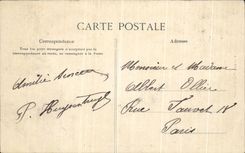 CARTE POSTALE
Correspondance
Adresse
Tous les pays étrangers n'acceptent pas la
correspondance au recto, se renseigner à la Poste
Amitié
Monsieur et Madame
Albert Ollier
P.
Rue
Paris